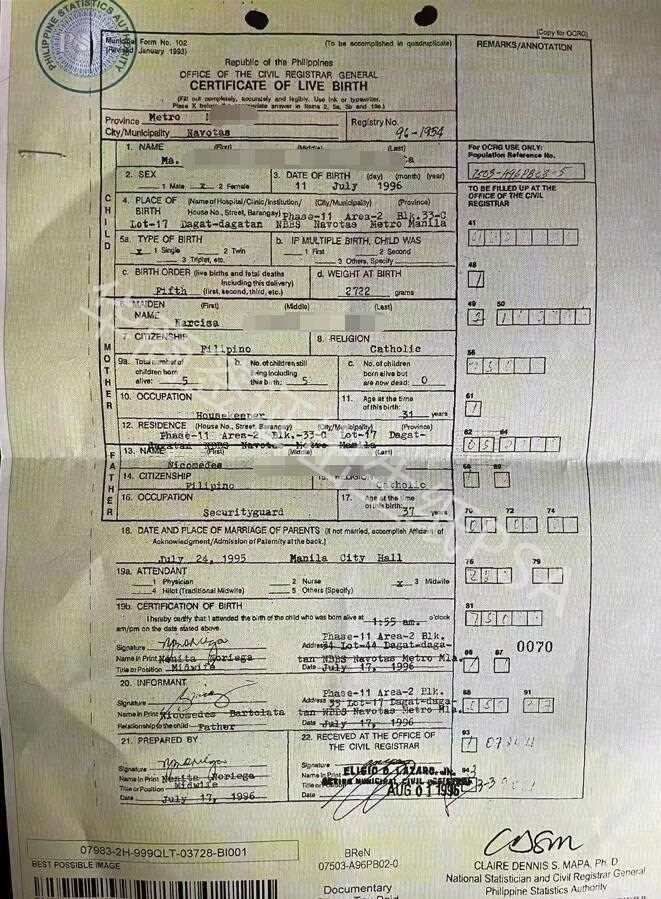 PHILIPPINE STATISTICS AUTHORITY
Municipal Form No. 102
(Revised January 1993)
(To be accomplished in quadruplicate)
(Copy for OCRG)
REMARKS/ANNOTATION
Republic of the Philippines
OFFICE OF THE CIVIL REGISTRAR GENERAL
CERTIFICATE OF LIVE BIRTH
(Fill out completely, accurately and legibly. Use ink or typewriter.
Place X before the appropriate answer in Items 2, 5a, 5b and 19a.)
Province Metro
Registry No.
City/Municipality Navotas
96-1954
For OCRG USE ONLY:
Population Reference No.
TO BE FILLED UP AT THE
OFFICE OF THE CIVIL
REGISTRAR
CHILD
1. NAME (First) (Middle) (Last)
Ma.
2. SEX
1 Male x 2 Female
3. DATE OF BIRTH (day) (month) (year)
11 July 1996
4. PLACE OF BIRTH (Name of Hospital/Clinic/Institution/ (City/Municipality) (Province)
House No., Street, Barangay) Phase-11 Area-2 Blk.33-C
Lot-17 Dagat-dagatan NBBS Navotas Metro Manila
5a. TYPE OF BIRTH
x 1 Single 2 Twin
3 Triplet, etc.
b. IF MULTIPLE BIRTH, CHILD WAS
1 First 2 Second
3 Others, Specify
c. BIRTH ORDER (live births and fetal deaths
including this delivery)
Fifth (first, second, third, etc.)
d. WEIGHT AT BIRTH
2722 grams
MOTHER
6. MAIDEN NAME (First) (Middle) (Last)
Narcisa
7. CITIZENSHIP
Filipino
8. RELIGION
Catholic
9a. Total number of
children born
alive: 5
b. No. of children still
living including
this birth: 5
c. No. of children
born alive but
are now dead: 0
10. OCCUPATION
Housekeeper
11. Age at the time
of this birth:
31 years
12. RESIDENCE (House No., Street, Barangay) (City/Municipality) (Province)
Phase-11 Area-2 Blk.-33-C Lot-17 Dagat-
dagatan NBBS Navotas Metro Manila
FATHER
13. NAME (First) (Middle) (Last)
Nicomedes
14. CITIZENSHIP
Filipino
15. RELIGION
Catholic
16. OCCUPATION
Securityguard
17. Age at the time
of this birth:
37 years
18. DATE AND PLACE OF MARRIAGE OF PARENTS (If not married, accomplish Affidavit of
Acknowledgment/Admission of Paternity at the back.)
July 24, 1995 Manila City Hall
19a. ATTENDANT
1 Physician 2 Nurse x 3 Midwife
4 Hilot (Traditional Midwife) 5 Others (Specify)
19b. CERTIFICATION OF BIRTH
I hereby certify that I attended the birth of the child who was born alive at 1:55 am. o'clock
am/pm on the date stated above.
Signature
Name in Print Nenita Noriega
Title or Position Midwife
Phase-11 Area-2 Blk.
Address 34 Lot-44 Dagat-daga-
tan NBBS Navotas Metro Mla.
Date July 17, 1996
20. INFORMANT
Signature
Name in Print Nicomedes Bartolata
Relationship to the child Father
Phase-11 Area-2 Blk.
Address 33 Lot-17 Dagat-daga-
tan NBBS Navotas Metro Mla.
Date July 17, 1996
21. PREPARED BY
Signature
Name in Print Nenita Noriega
Title or Position Midwife
Date July 17, 1996
22. RECEIVED AT THE OFFICE OF
THE CIVIL REGISTRAR
Signature
Name in Print ELIGIO D. LAZARO, Jr.
Title or Position
Date AUG 01 1996
41
48
49 50
56
61
62 64
68 69
70 72 74
76 79
81
0070
86 87
88 91
93
94
07983-2H-999QLT-03728-BI001
BEST POSSIBLE IMAGE
BReN
07503-A96PB02-0
Documentary
Tax Paid
CLAIRE DENNIS S. MAPA, Ph. D
National Statistician and Civil Registrar General
Philippine Statistics Authority